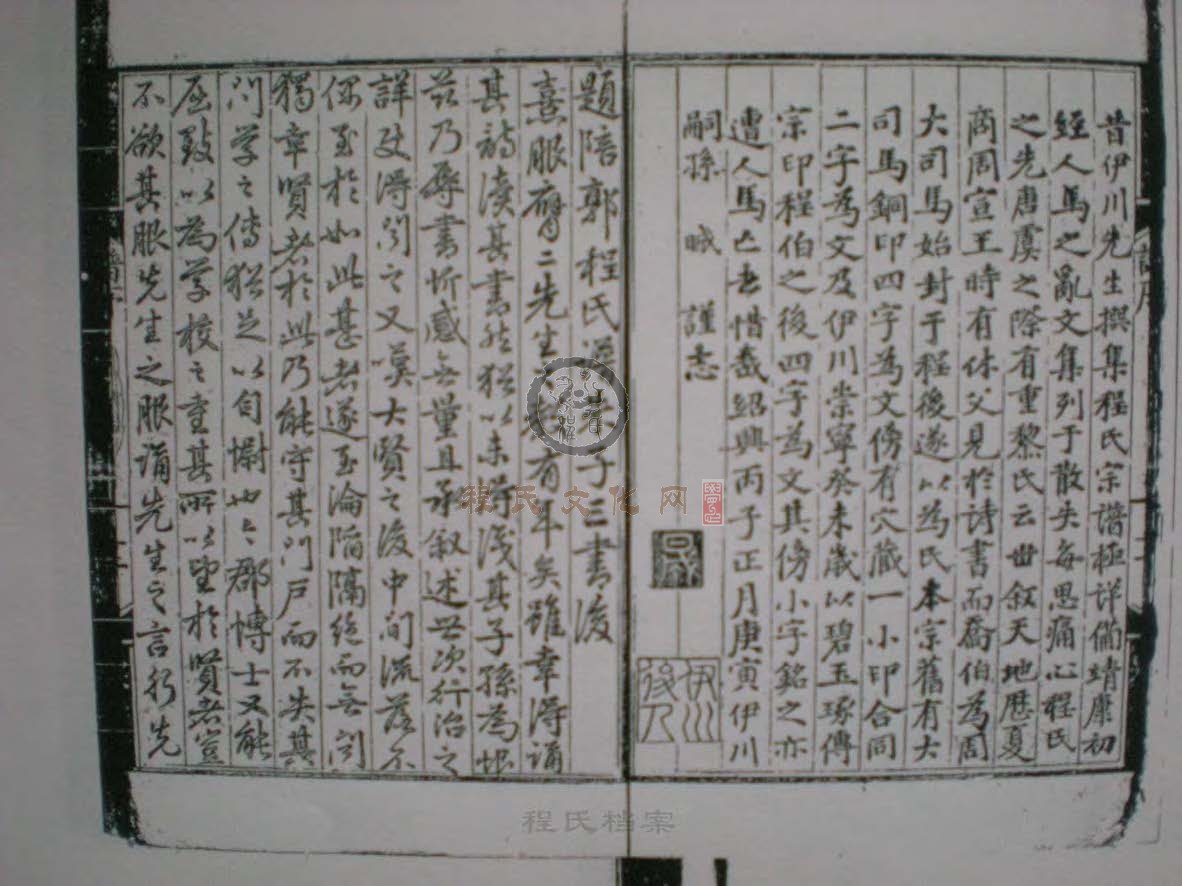 昔伊川先生撰集程氏宗譜極詳備靖康初
經人馬之亂文集列于散失每思痛心程氏
之先唐虞之際有重黎氏云世叙天地歷夏
商周宣王時有休父見於詩書而喬伯為周
大司馬始封于程後遂以為氏本宗舊有大
司馬銅印四字為文傍有穴藏一小印合同
二字為文及伊川崇寧癸未歲以碧玉琢傳
宗印程伯之後四字為文其傍小字銘之亦
遭人馬亡去惜哉紹興丙子正月庚寅伊川
嗣孫 晠 謹志
伊川
後人
題陪郭程氏子三書後
熹服膺二先生有年矣雖幸得誦
其詩讀其書然猶以未得識其子孫為恨
茲乃辱書忻感無量且承叙述世次行治之
詳更得聞之又嘆大賢之後中間流落不
偶至於如此甚者遂至淪陷隔絕而無聞
獨幸賢者於此乃能守其門戶而不失其
門學之傳猶足以自慰也郡博士又能
屈致以為學校之重其所以望於賢者豈
不欲其服先生之服誦先生之言行先
程氏文化网
程氏档案